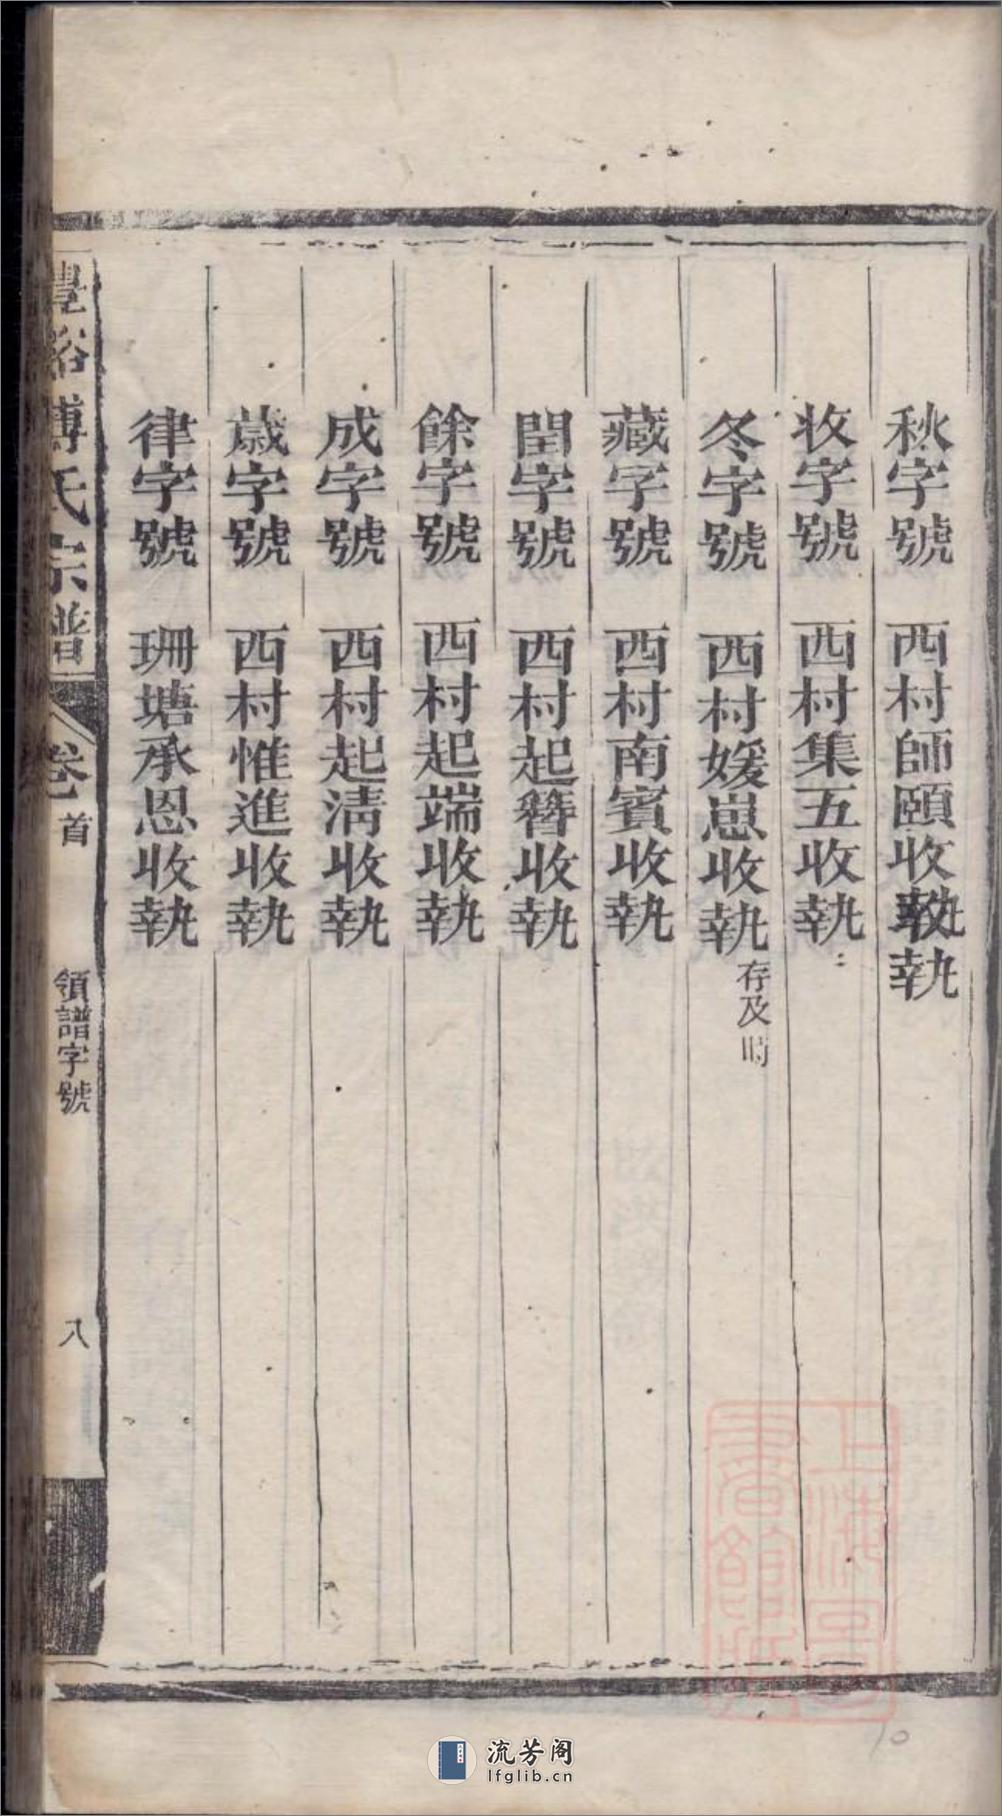 秋字號 西村師頤收執
收字號 西村集五收執
冬字號 西村媛崽收執 存及時
藏字號 西村南賓收執
閏字號 西村起簪收執
餘字號 西村起端收執
成字號 西村起淸收執
歲字號 西村惟進收執
律字號 珊塘承恩收執
豊谿傅氏宗譜
卷首
領譜字號
八
上海圖書館藏
10
流芳阁
lfglib.cn